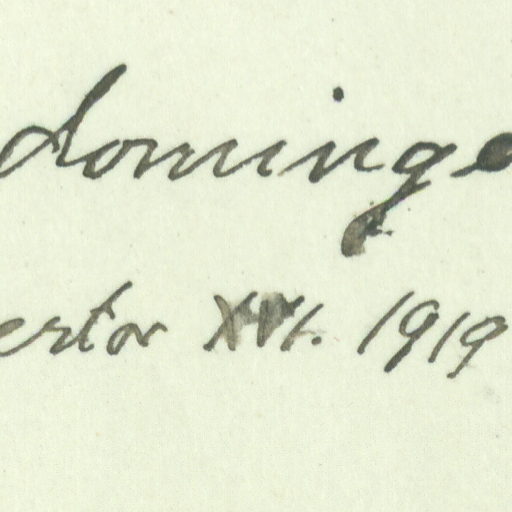 domingo
ertor XVI. 1919